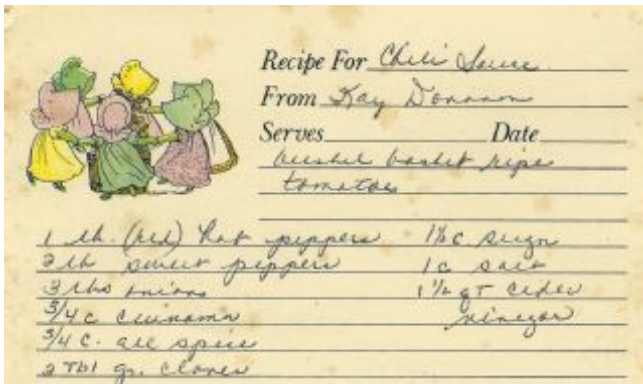 Recipe For Chili Sauce
From Kay
Serves Date
bushel basket ripe
tomatoes
1 lb. (red) hot peppers
2 lb sweet peppers
3 lbs onions
3/4 c cinnamon
3/4 c. all spice
2 Tbl gr. cloves
c sugar
1 c salt
1 1/2 qt cider
vinegar